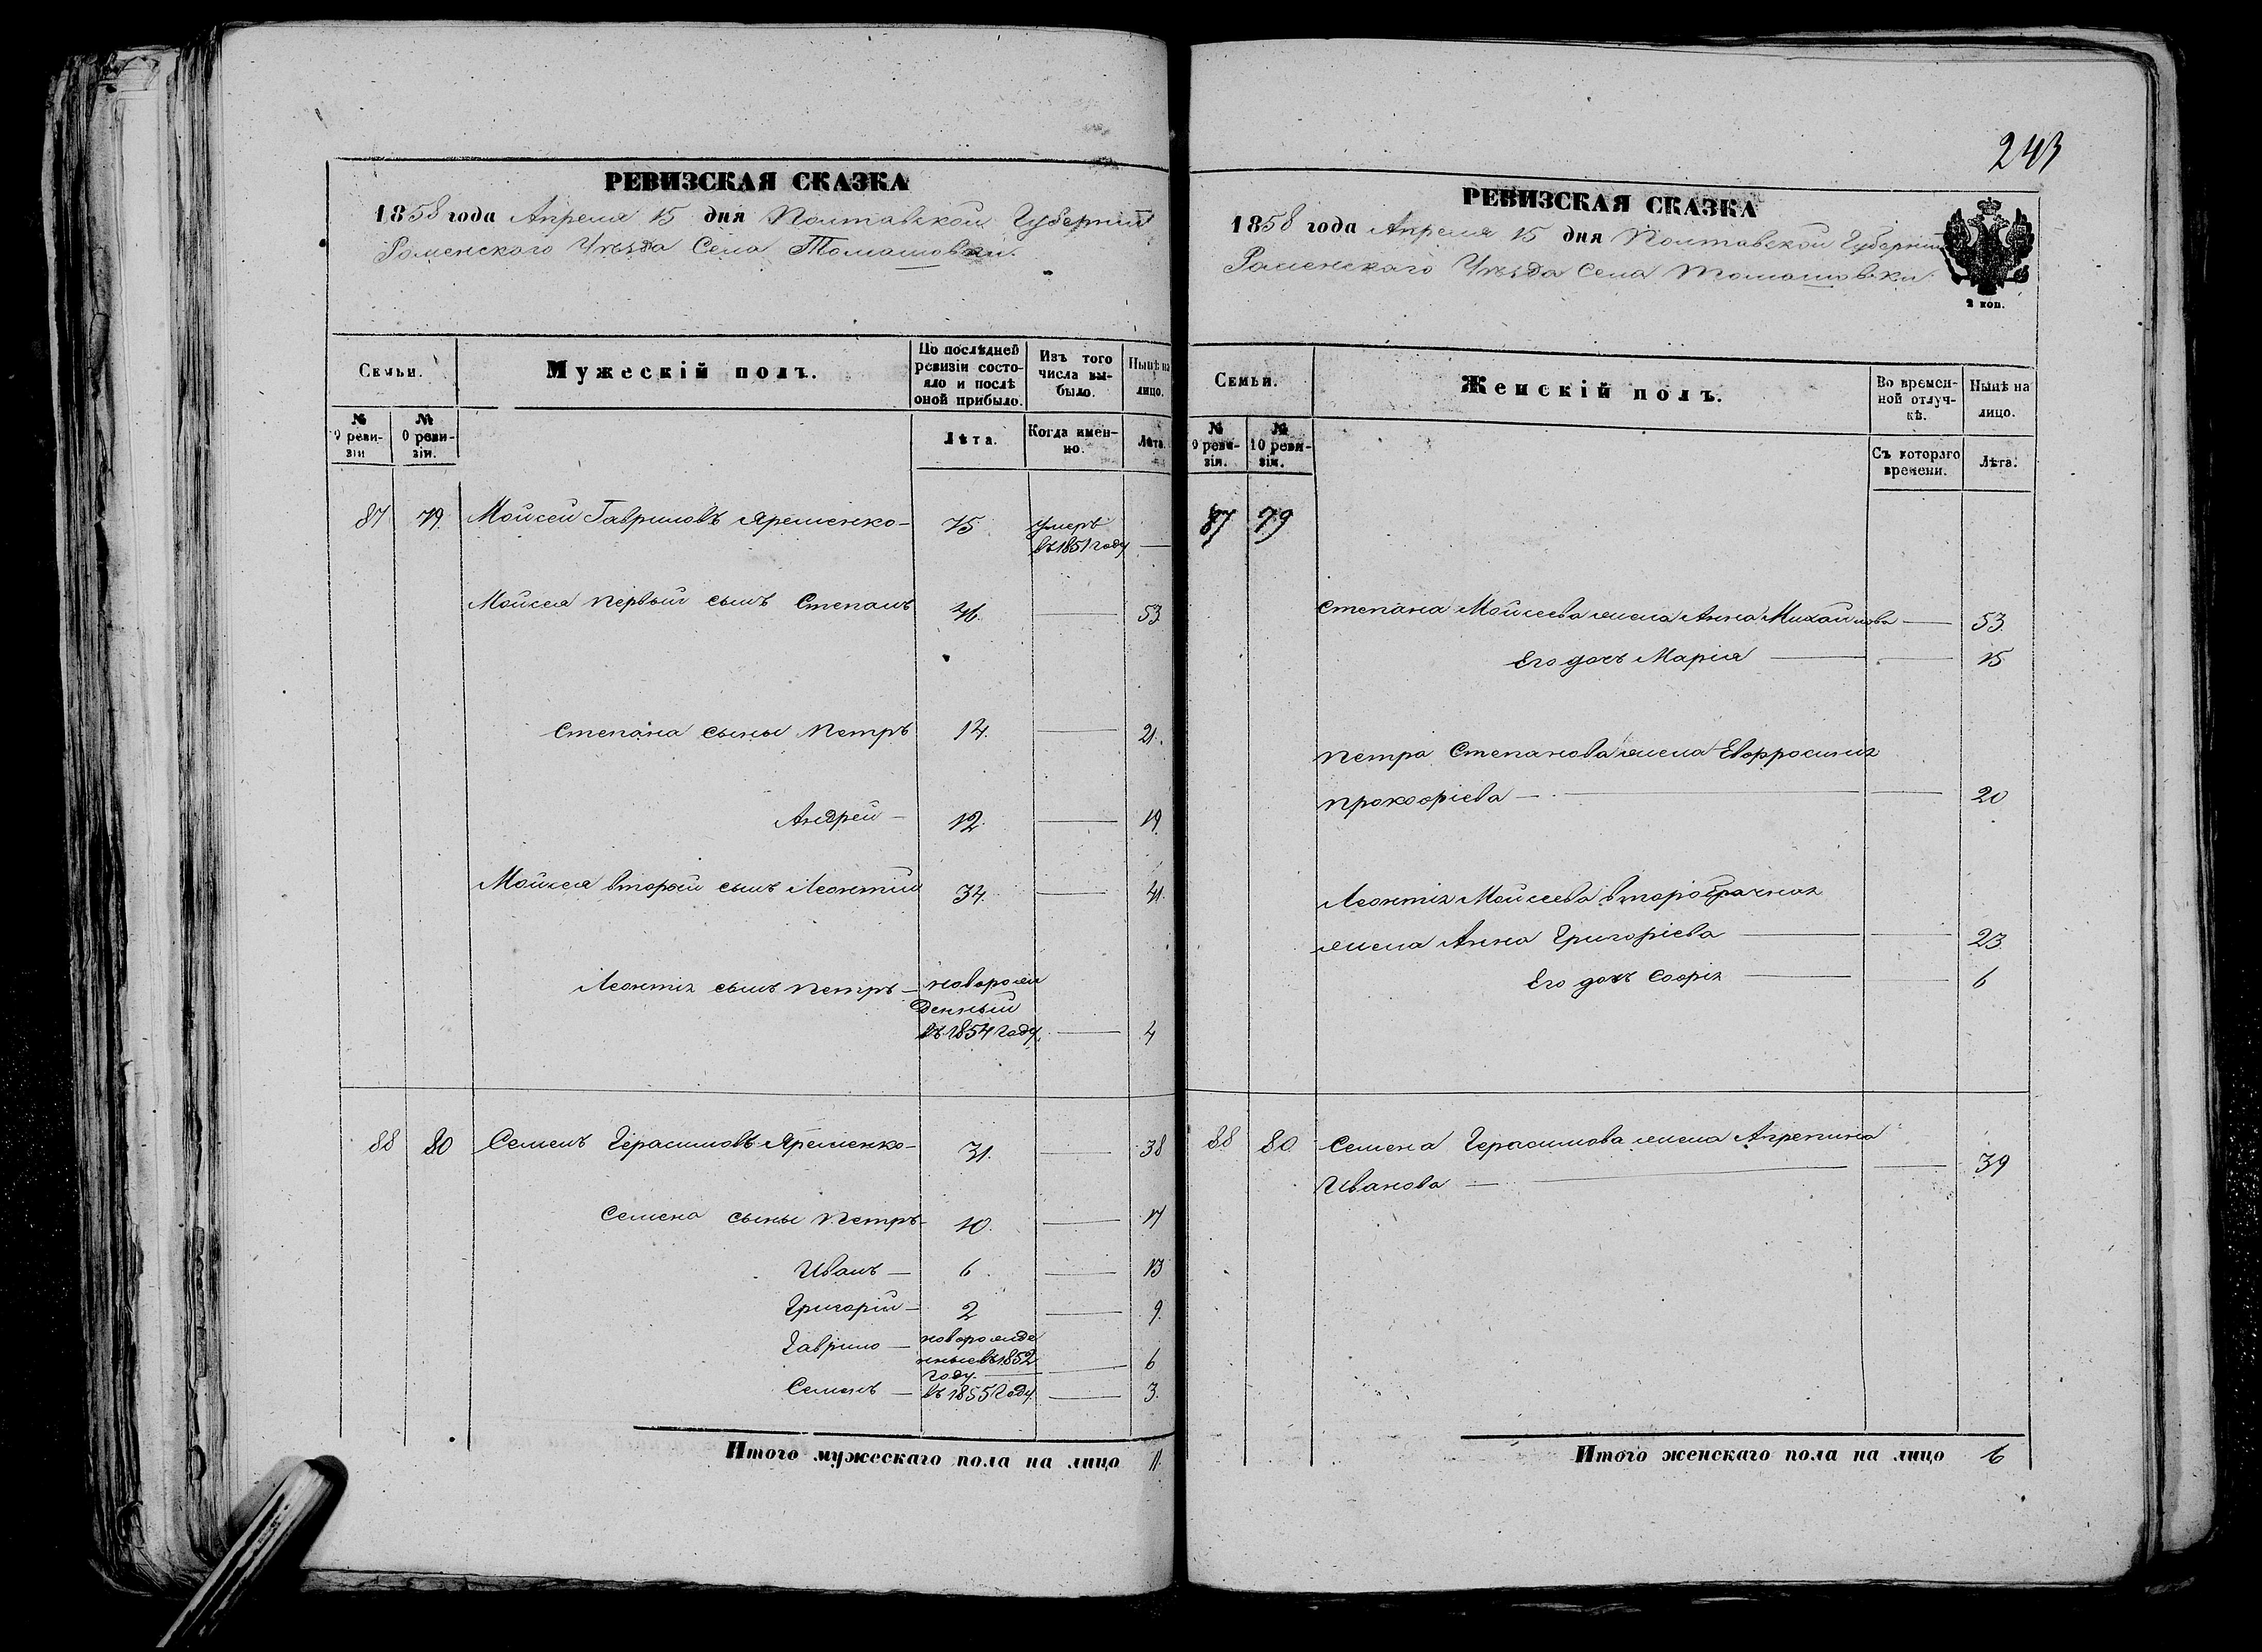 РЕВИЗСКАЯ СКАЗКА
1858 года Апреля 15 дня Полтавской Губерніи
Роменского Уѣзда Села Томашовки.
Семьи.
Мужескій полъ.
По послѣдней ревизіи состояло и послѣ оной прибыло.
Изъ того числа выбыло.
Нынѣ на лицо.
№ 9 ревизіи
№ 10 ревизіи.
Лѣта.
Когда именно.
Лѣта.
87 79 Мойсей Гавриловъ Яременко— 75 умеръ
въ 1851 году —
Мойсея первый сынъ Степанъ 46. — 53.
Степана сыны Петръ 14. — 21.
Андрей — 12. — 19.
Мойсея второй сынъ Леонтій 34. — 41.
Леонтія сынъ Петръ — новорож
денный
въ 1854 году — 4
88 80 Семенъ Герасимовъ Яременко— 31. — 38
Семена сыны Петръ— 10. — 17
Иванъ — 6. — 13
Григорій — 2 — 9.
Гаврило — новорожде
нные въ 1852
году. — 6
Семенъ — въ 1855 году — 3.
Итого мужескаго пола на лицо 11.
243
РЕВИЗСКАЯ СКАЗКА
1858 года Апреля 15 дня Полтавской Губерніи
Роменскаго Уѣзда Села Томашовки.
2 коп.
Семьи.
Женскій полъ.
Во временной отлучкѣ.
Нынѣ на лицо.
№ 9 ревизіи.
№ 10 ревизіи.
Съ котораго времени.
Лѣта.
87 79
Степана Мойсеева жена Анна Михайлова — 53.
Его дочь Марія — — 15
Петра Степанова жена Евфросинія
Прокофіева — — 20
Леонтія Мойсеева второбрачная
жена Анна Григоріева — — 23.
Его дочь Софія — — 6
88 80. Семена Герасимова жена Агрепина
Иванова — — 39
Итого женскаго пола на лицо 6